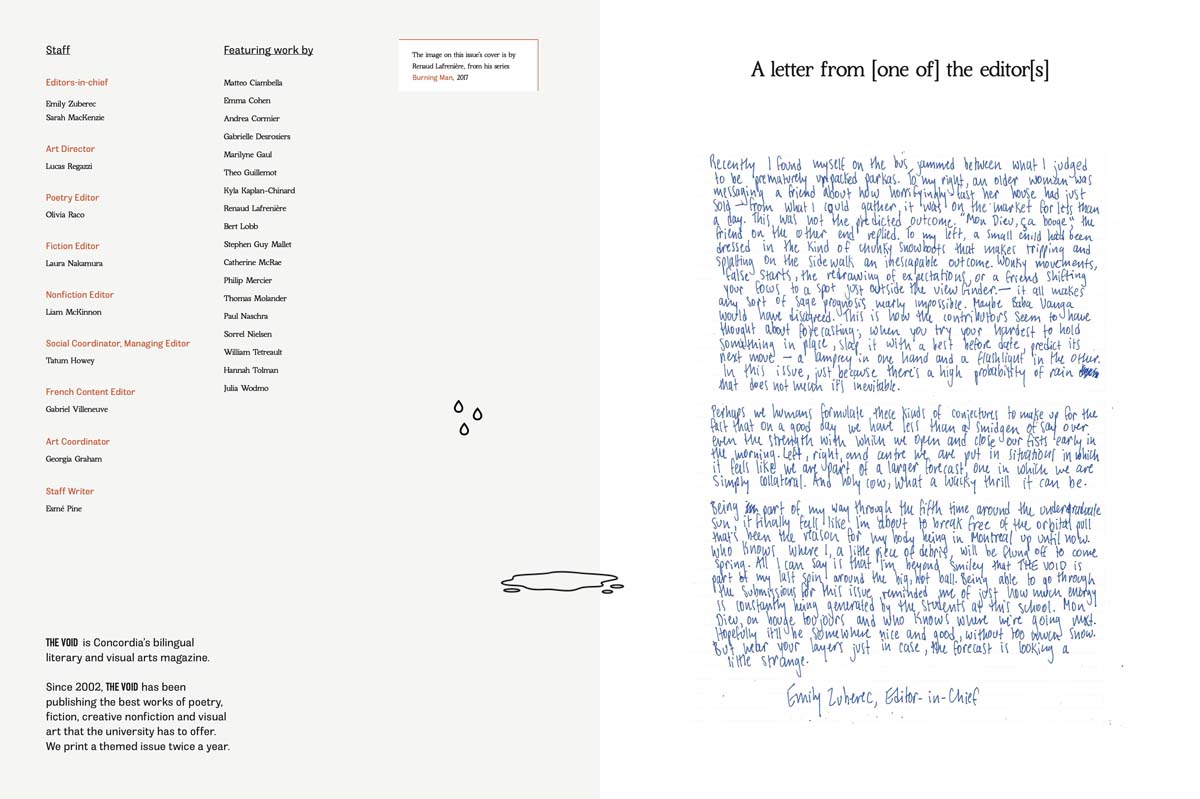 Staff
Editors-in-chief
Emily Zuberec
Sarah MacKenzie
Art Director
Lucas Regazzi
Poetry Editor
Olivia Raco
Fiction Editor
Laura Nakamura
Nonfiction Editor
Liam McKinnon
Social Coordinator, Managing Editor
Tatum Howey
French Content Editor
Gabriel Villeneuve
Art Coordinator
Georgia Graham
Staff Writer
Esmé Pine
Featuring work by
Matteo Ciambella
Emma Cohen
Andrea Cormier
Gabrielle Desrosiers
Marilyne Gaul
Theo Guillemot
Kyla Kaplan-Chinard
Renaud Lafrenière
Bert Lobb
Stephen Guy Mallet
Catherine McRae
Philip Mercier
Thomas Molander
Paul Naschra
Sorrel Nielsen
William Tetreault
Hannah Tolman
Julia Wodmo
The image on this issue's cover is by
Renaud Lafrenière, from his series
Burning Man, 2017
THE VOID is Concordia's bilingual
literary and visual arts magazine.
Since 2002, THE VOID has been
publishing the best works of poetry,
fiction, creative nonfiction and visual
art that the university has to offer.
We print a themed issue twice a year.
A letter from [one of] the editor[s]
Recently I found myself on the bus, jammed between what I judged
to be prematurely unpacked parkas. To my right, an older woman was
messaging a friend about how horrifyingly fast her house had just
sold – from what I could gather, it was on the market for less than
a day. This was not the predicted outcome. "Mon Dieu, ça bouge", the
friend on the other end replied. To my left, a small child had been
dressed in the kind of chunky snowboots that makes tripping and
splatting on the sidewalk an inescapable outcome. Wonky movements,
false starts, the redrawing of expectations, or a friend shifting
your focus to a spot just outside the view finder – it all makes
any sort of sage prognosis nearly impossible. Maybe Baba Vanga
would have disagreed. This is how the contributors seem to have
thought about forecasting; when you try your hardest to hold
something in place, slap it with a best before date, predict its
next move – a lamprey in one hand and a flashlight in the other.
In this issue, just because there's a high probability of rain
that does not mean it's inevitable.
Perhaps we humans formulate these kinds of conjectures to make up for the
fact that on a good day we have less than a smidgen of say over
even the strength with which we open and close our fists early in
the morning. Left, right, and centre we are put in situations in which
it feels like we are part of a larger forecast, one in which we are
simply collateral. And holy cow, what a wacky thrill it can be.
Being part of my way through the fifth time around the undergraduate
sun, it finally feels like I'm about to break free of the orbital pull
that's been the reason for my body being in Montreal up until now.
Who knows where I, a little piece of debris, will be flung off to come
spring. All I can say is that I'm beyond smiley that THE VOID is
part of my last spin around the big, hot ball. Being able to go through
the submissions for this issue reminded me of just how much energy
is constantly being generated by the students at this school. Mon
Dieu, on bouge toujours and who knows where we're going next.
Hopefully it'll be somewhere nice and good, without too much snow.
But wear your layers just in case, the forecast is looking a
little strange.
Emily Zuberec, Editor-in-Chief